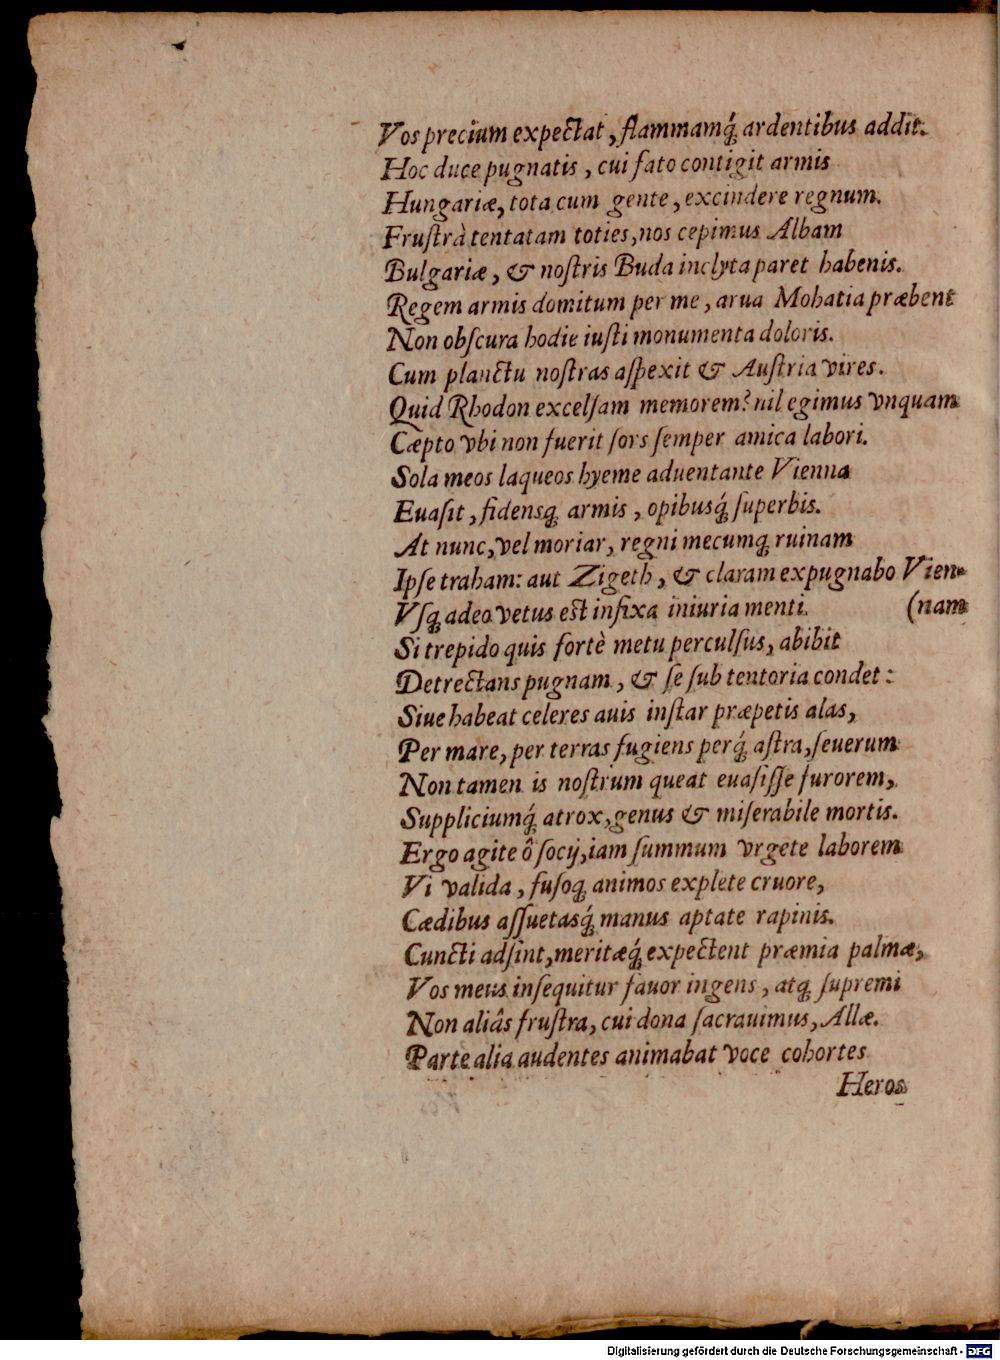 Vos precium expectat, flammamq́; ardentibus addit.
Hoc duce pugnatis, cui fato contigit armis
Hungariæ, tota cum gente, excindere regnum.
Fruſtrà tentatam toties, nos cepimus Albam
Bulgariæ, & noſtris Buda inclyta paret habenis.
Regem armis domitum per me, arua Mohatia præbent
Non obſcura hodie iuſti monumenta doloris.
Cum planctu noſtras aſpexit & Auſtria vires.
Quid Rhodon excelſam memorem? nil egimus vnquam
Cæpto vbi non fuerit ſors ſemper amica labori.
Sola meos laqueos hyeme aduentante Vienna
Euaſit, fidensq; armis, opibusq́; ſuperbis.
At nunc, vel moriar, regni mecumq; ruinam
Ipſe traham: aut Zigeth, & claram expugnabo Vien-
Vſq; adeo vetus est infixa iniuria menti. (nam
Si trepido quis fortè metu perculſus, abibit
Detrectans pugnam, & ſe ſub tentoria condet:
Siue habeat celeres auis inſtar præpetis alas,
Per mare, per terras fugiens perq́; aſtra, ſeuerum
Non tamen is noſtrum queat euaſiſſe furorem,
Suppliciumq́; atrox, genus & miſerabile mortis.
Ergo agite ô ſocij, iam ſummum vrgete laborem
Vi valida, fuſoq; animos explete cruore,
Cædibus aſſuetasq́; manus aptate rapinis.
Cuncti adſint, meritæq́; expectent præmia palmæ,
Vos meus inſequitur fauor ingens, atq; ſupremi
Non aliâs fruſtra, cui dona ſacrauimus, Allæ.
Parte alia audentes animabat voce cohortes
Heros
Digitalisierung gefördert durch die Deutsche Forschungsgemeinschaft - DFG